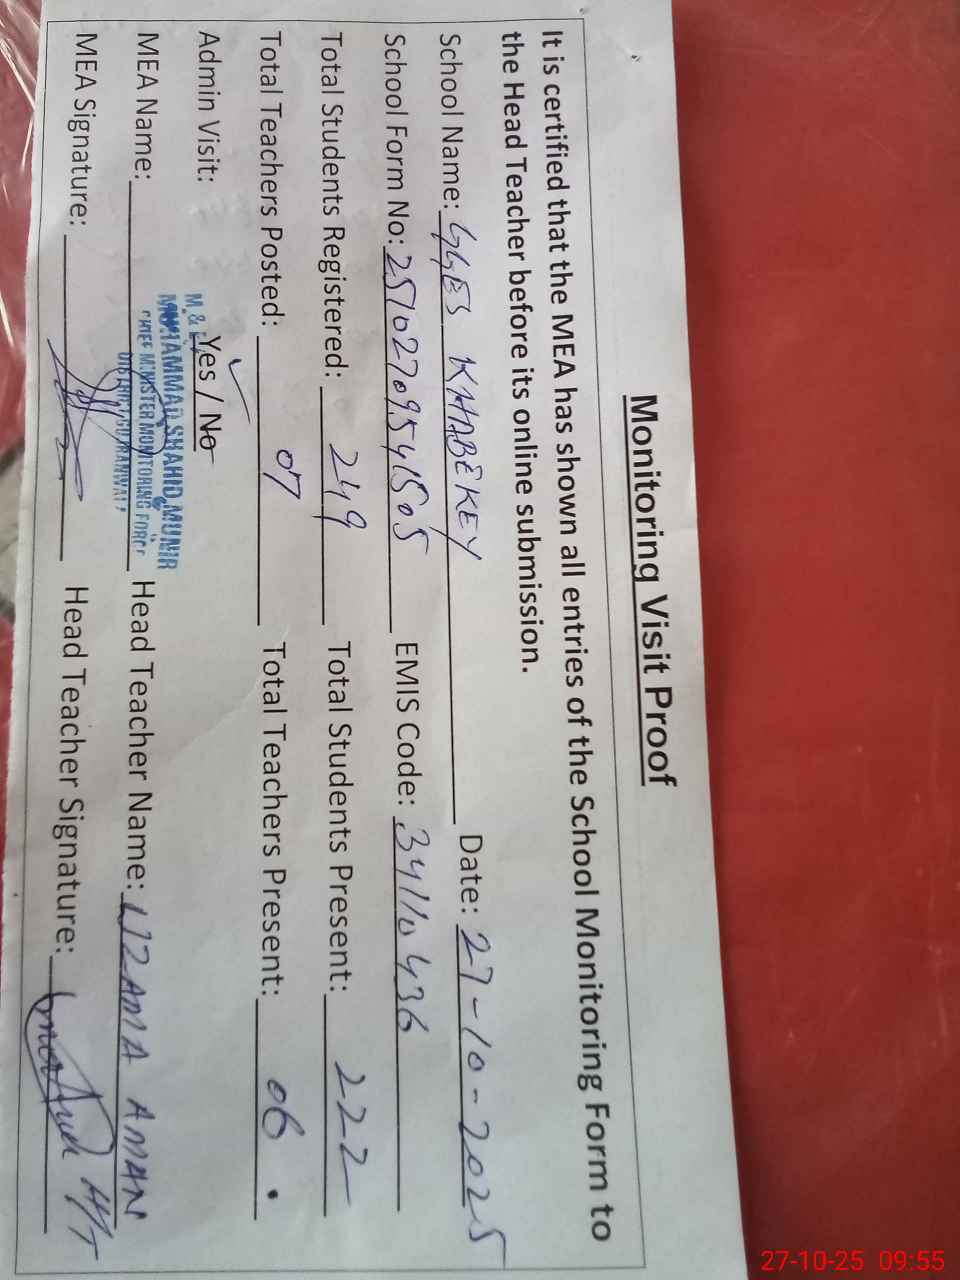 Monitoring Visit Proof
It is certified that the MEA has shown all entries of the School Monitoring Form to
the Head Teacher before its online submission.
School Name: GGES KHABEKEY Date: 27-10-2025
School Form No: 25102709541505 EMIS Code: 34110436
Total Students Registered: 249 Total Students Present: 222
Total Teachers Posted: 07 Total Teachers Present: 06
Admin Visit: Yes / No
M & E
MUHAMMAD SHAHID MUNIR
CHIEF MINISTER MONITORING FORCE
DISTRICT GUJRANWALA
MEA Name: Head Teacher Name: UZAMA AMAN
MEA Signature: Head Teacher Signature: H/T
27-10-25 09:55